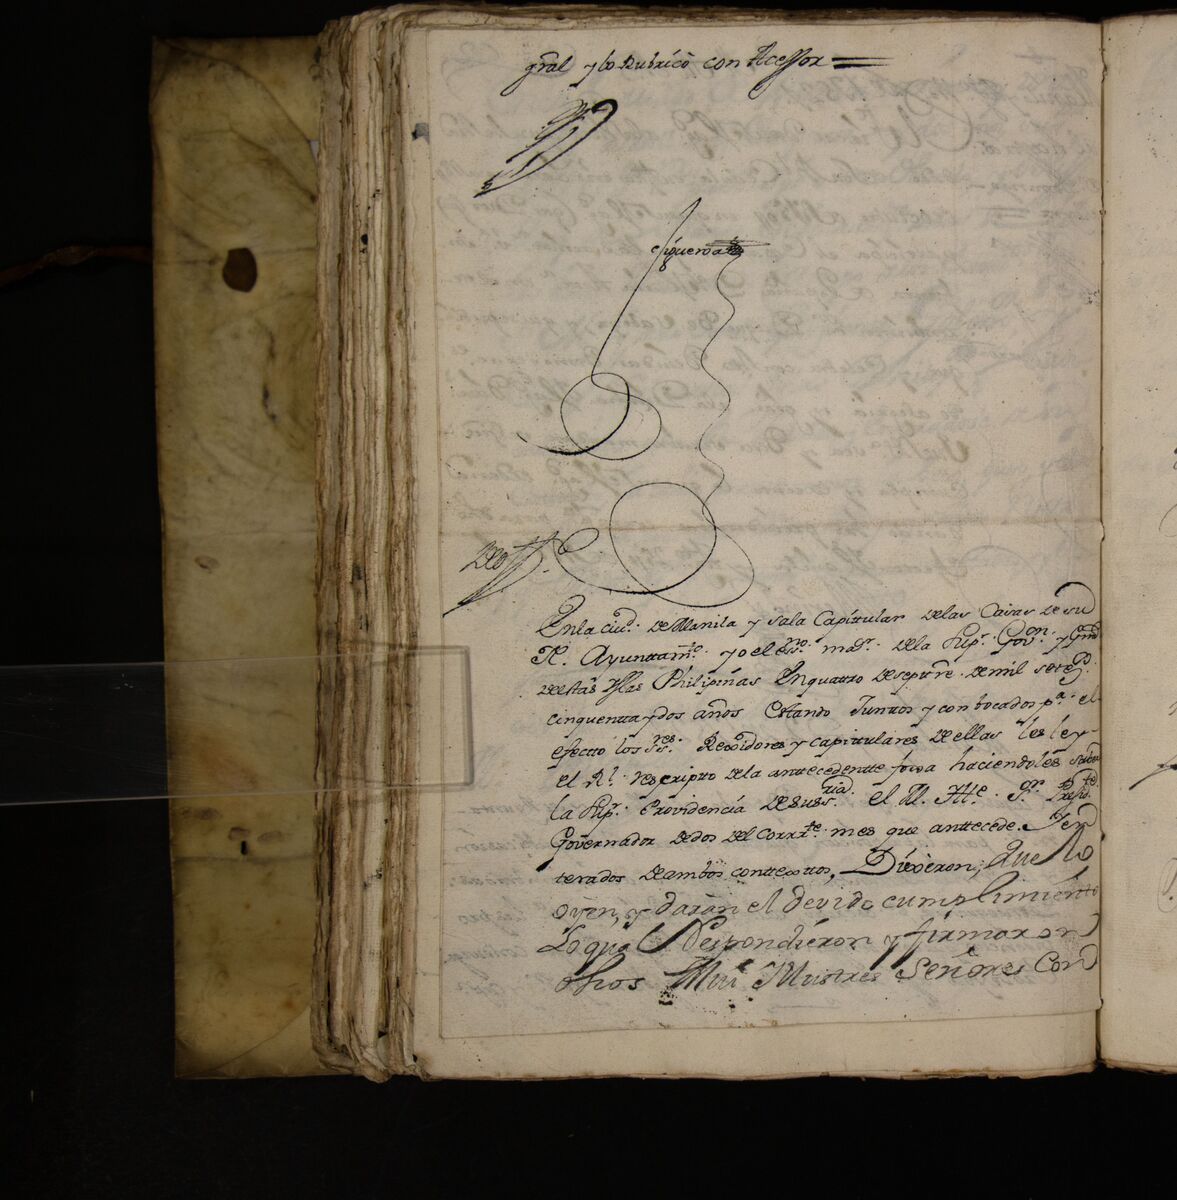 gral y lo Rubricò con Acessor
Figueroa
En la ciud. de Manila y sala Capitular de las Casas de su
Rl. Ayuntamto. yo el essno. mar. de la Supr. Govon. y Gral
de estas Yslas Philipinas En quatro de septre. de mil setezs.
cinquenta y dos años Estando Juntos y conbocados pa. el
efecto los Sres. Rexidores y capitulares de ellas les ley
el Rl. rescripto de la antecedentte foxa haciendoles saber
la Supr. Providencia de su Ssria. el M. Ille. Sor. Presidte.
Governador de dos del Corrte. mes que anttecede. Y en
terados de ambos conttextos, Dixeron, que lo
oyen, y daràn el devido cumplimiento
Lo qual Respondieron y firmaron
dhos Mui Illustres Señores Con